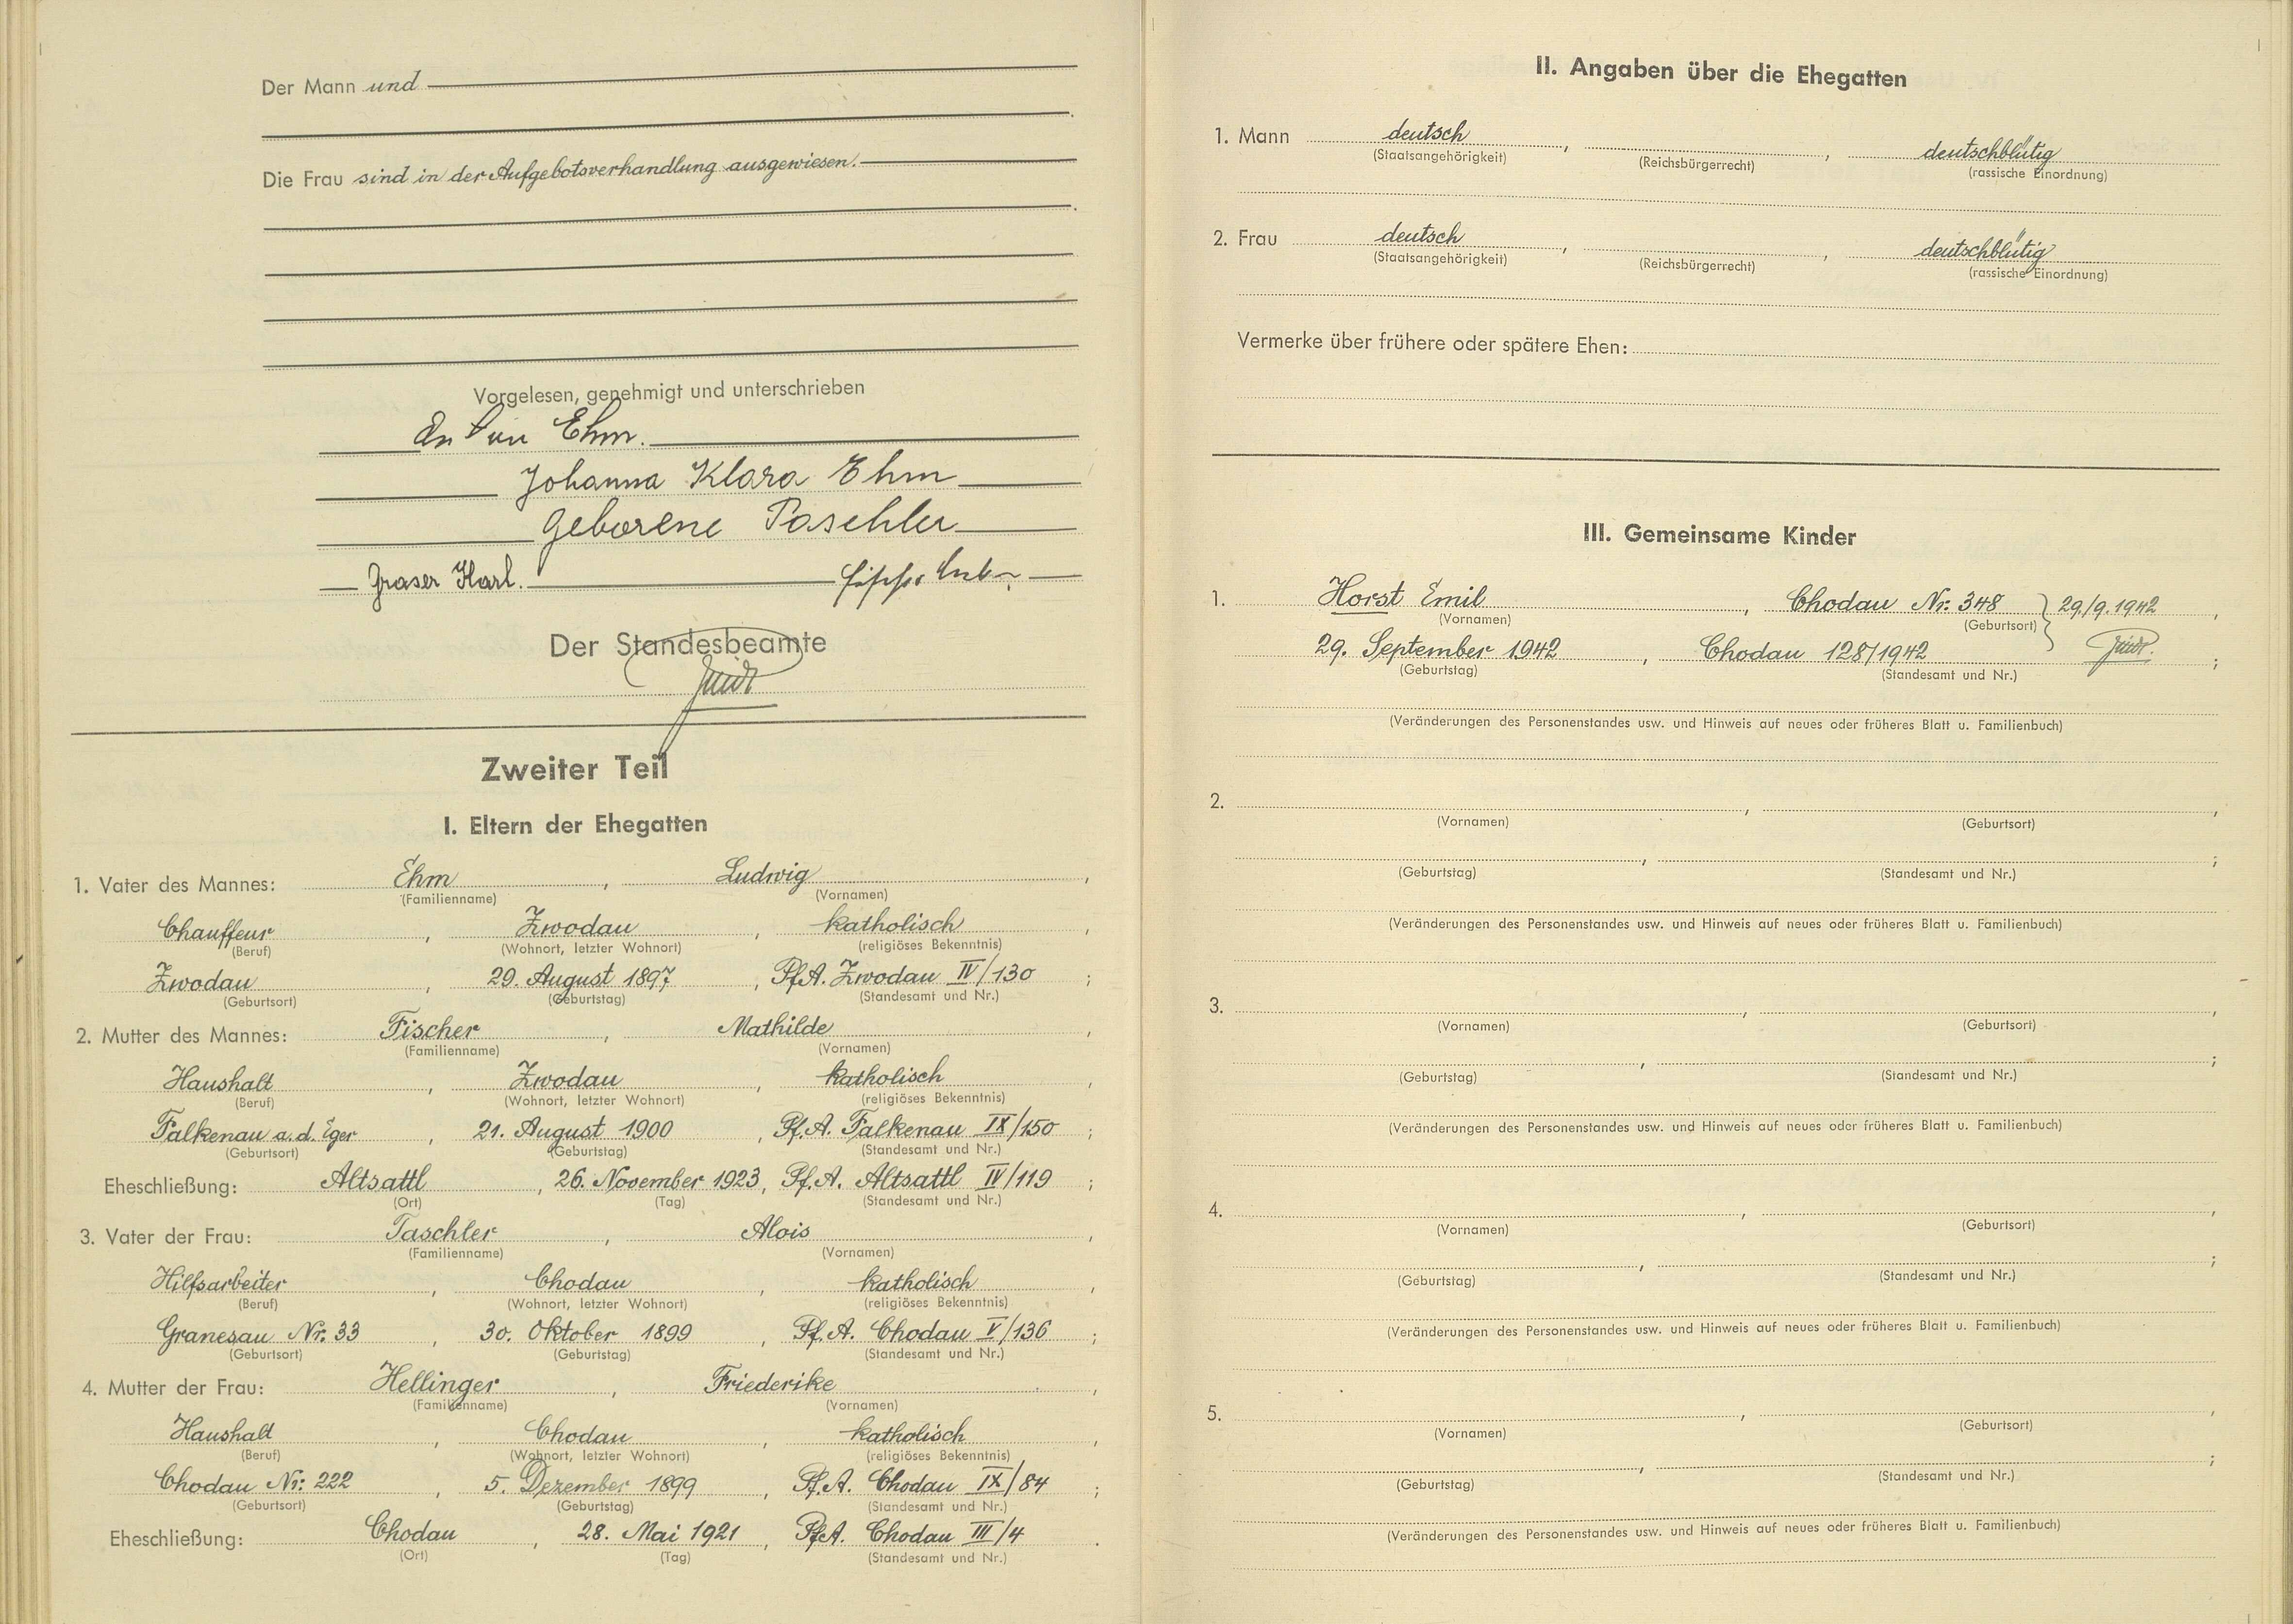 Der Mann und
Die Frau sind in der Aufgebotsverhandlung ausgewiesen.
Vorgelesen, genehmigt und unterschrieben
Anton Ehm.
Johanna Klara Ehm
geborene Taschler
Graser Karl.
Der Standesbeamte
Zweiter Teil
I. Eltern der Ehegatten
1. Vater des Mannes: Ehm, Ludwig,
(Familienname) (Vornamen)
Chauffeur, Zwodau, katholisch,
(Beruf) (Wohnort, letzter Wohnort) (religiöses Bekenntnis)
Zwodau, 29. August 1897, Pf.A. Zwodau IV/130;
(Geburtsort) (Geburtstag) (Standesamt und Nr.)
2. Mutter des Mannes: Fischer, Mathilde,
(Familienname) (Vornamen)
Haushalt, Zwodau, katholisch,
(Beruf) (Wohnort, letzter Wohnort) (religiöses Bekenntnis)
Falkenau a.d. Eger, 21. August 1900, Pf.A. Falkenau IX/150;
(Geburtsort) (Geburtstag) (Standesamt und Nr.)
Eheschließung: Altsattl, 26. November 1923, Pf.A. Altsattl IV/119;
(Ort) (Tag) (Standesamt und Nr.)
3. Vater der Frau: Taschler, Alois,
(Familienname) (Vornamen)
Hilfsarbeiter, Chodau, katholisch,
(Beruf) (Wohnort, letzter Wohnort) (religiöses Bekenntnis)
Granesau Nr. 33, 30. Oktober 1899, Pf.A. Chodau V/136;
(Geburtsort) (Geburtstag) (Standesamt und Nr.)
4. Mutter der Frau: Hellinger, Friederike,
(Familienname) (Vornamen)
Haushalt, Chodau, katholisch,
(Beruf) (Wohnort, letzter Wohnort) (religiöses Bekenntnis)
Chodau Nr: 222, 5. Dezember 1899, Pf.A. Chodau IX/84;
(Geburtsort) (Geburtstag) (Standesamt und Nr.)
Eheschließung: Chodau, 28. Mai 1921, Pf.A. Chodau III/4.
(Ort) (Tag) (Standesamt und Nr.)
II. Angaben über die Ehegatten
1. Mann deutsch, , deutschblütig
(Staatsangehörigkeit) (Reichsbürgerrecht) (rassische Einordnung)
2. Frau deutsch, , deutschblütig
(Staatsangehörigkeit) (Reichsbürgerrecht) (rassische Einordnung)
Vermerke über frühere oder spätere Ehen:
III. Gemeinsame Kinder
1. Horst Emil, Chodau Nr: 348 } 29./9.1942,
(Vornamen) (Geburtsort)
29. September 1942, Chodau 128/1942;
(Geburtstag) (Standesamt und Nr.)
(Veränderungen des Personenstandes usw. und Hinweis auf neues oder früheres Blatt u. Familienbuch)
2. , ,
(Vornamen) (Geburtsort)
, ;
(Geburtstag) (Standesamt und Nr.)
(Veränderungen des Personenstandes usw. und Hinweis auf neues oder früheres Blatt u. Familienbuch)
3. , ,
(Vornamen) (Geburtsort)
, ;
(Geburtstag) (Standesamt und Nr.)
(Veränderungen des Personenstandes usw. und Hinweis auf neues oder früheres Blatt u. Familienbuch)
4. , ,
(Vornamen) (Geburtsort)
, ;
(Geburtstag) (Standesamt und Nr.)
(Veränderungen des Personenstandes usw. und Hinweis auf neues oder früheres Blatt u. Familienbuch)
5. , ,
(Vornamen) (Geburtsort)
, ;
(Geburtstag) (Standesamt und Nr.)
(Veränderungen des Personenstandes usw. und Hinweis auf neues oder früheres Blatt u. Familienbuch)